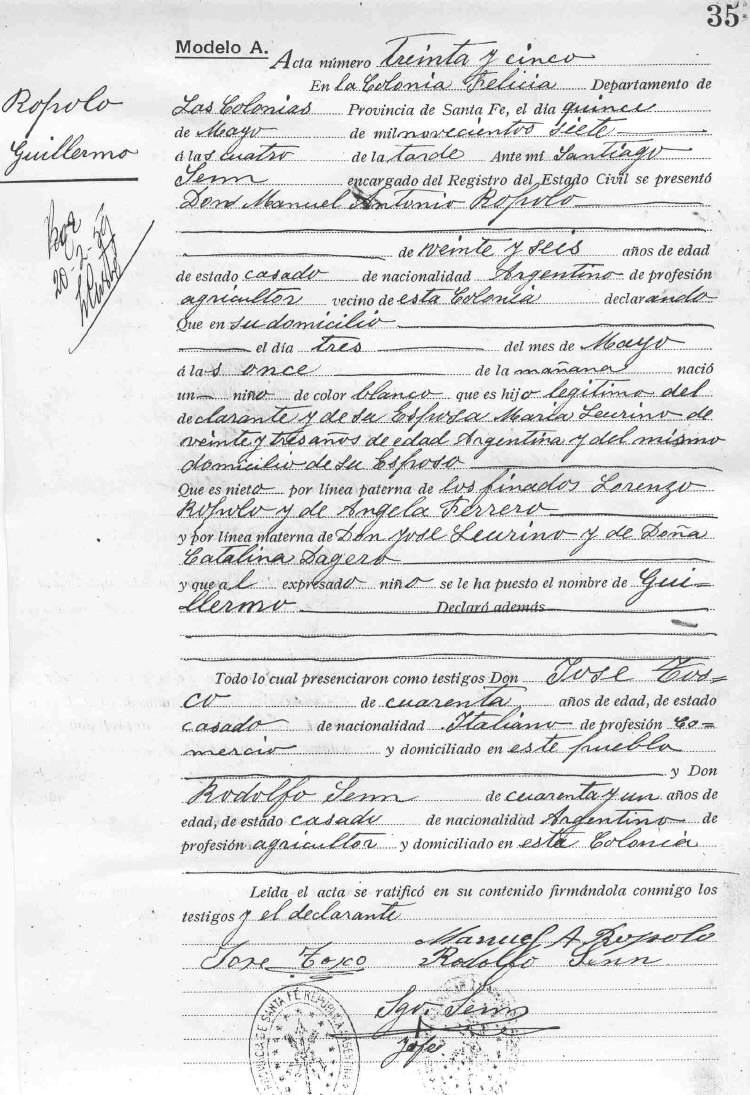 35
Modelo A.
Acta número treinta y cinco
En la Colonia Felicia Departamento de
Ropolo
Guillermo
Las Colonias Provincia de Santa Fe, el día quince
de Mayo de mil novecientos siete
á las cuatro de la tarde Ante mi Santiago
Senn encargado del Registro del Estado Civil se presentó
Don Manuel Antonio Ropolo
de veinte y seis años de edad
20-2-59
de estado casado de nacionalidad Argentino de profesión
agricultor vecino de esta Colonia declarando
Que en su domicilio
el día tres del mes de Mayo
á las once de la mañana nació
un niño de color blanco que es hijo legitimo del
declarante y de su Esposa Maria Leurino de
veinte y tres años de edad Argentina y del mismo
domicilio de su Esposo
Que es nieto por línea paterna de los finados Lorenzo
Ropolo y de Angela Ferrero
y por línea materna de Don José Leurino y de Doña
Catalina Dagero
y que al expresado niño se le ha puesto el nombre de Gui=
llermo Declaró además
Todo lo cual presenciaron como testigos Don Jose Tos=
co de cuarenta años de edad, de estado
casado de nacionalidad Italiano de profesión Co=
mercio y domiciliado en este pueblo
y Don
Rodolfo Senn de cuarenta y un años de
edad, de estado casado de nacionalidad Argentino de
profesión agricultor y domiciliado en esta Colonia
Leída el acta se ratificó en su contenido firmándola conmigo los
testigos y el declarante
Manuel A Ropolo
Jose Tosco Rodolfo Senn
Sgo. Senn
Jefe
DE SANTA FÉ REPUBLICA ARGENTINA